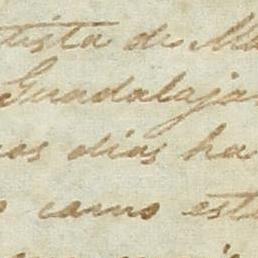 tista de Ma
Guadalaja
nos dias ha
o como est